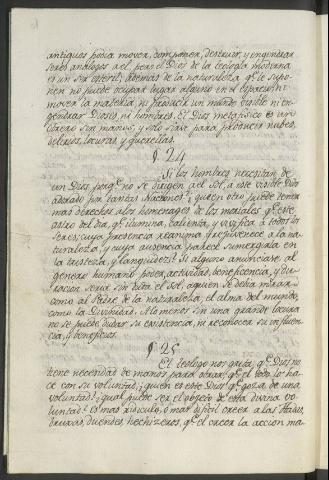 antiguos podia mover, componer, destruir, y engendrar
seres análogos a el, pero el Dios de la teologia moderna
es un ser esteril; además de la naturaleza q.e le supo-
nen no puede ocupar lugar alguno en el espacio, ni
mover la materia, ni producir un mundo visible ni en-
gendrar Dioses, ni hombres. El Dios metafisico es un
obrero sin manos, y solo sirve para producir nubes,
delirios, locuras y querellas.
§ 24
Si los hombres necesitan de
un Dios porq.e no se dirigen al Sol, a este visible Dios
adorado por tantas Naciones? ¿quien otro puede tener
mas derechos a los homenages de los mortales q.e este
astro del dia, q.e ilumina, calienta, y vivifica a todos los
seres; cuya presencia reanima y rejuvenece a la na-
turaleza, y cuya ausencia parece sumergirla en
la tristeza, y languidez? Si alguno anunciase al
genero humano poder, actividad, beneficencia, y du-
racion seria sin falta el Sol, a quien se debia mirar
como al Padre de la naturaleza, el alma del mundo,
como la Divinidad. A lo menos sin una grande locura
no se puede dudar su existencia, ni reconocer su influen-
cia, y beneficios.
§ 25
El teologo nos grita, q.e Dios no
tiene necesidad de manos para obrar; q.e el todo lo ha-
ce con su voluntad; ¿quien es este Dios q.e goza de una
voluntad? ¿qual puede ser el objeto de esta divina vo-
luntad? Es mas ridiculo, o mas dificil creer a las Hadas,
bruxas, duendes, hechizeros, q.e el creer la accion ma